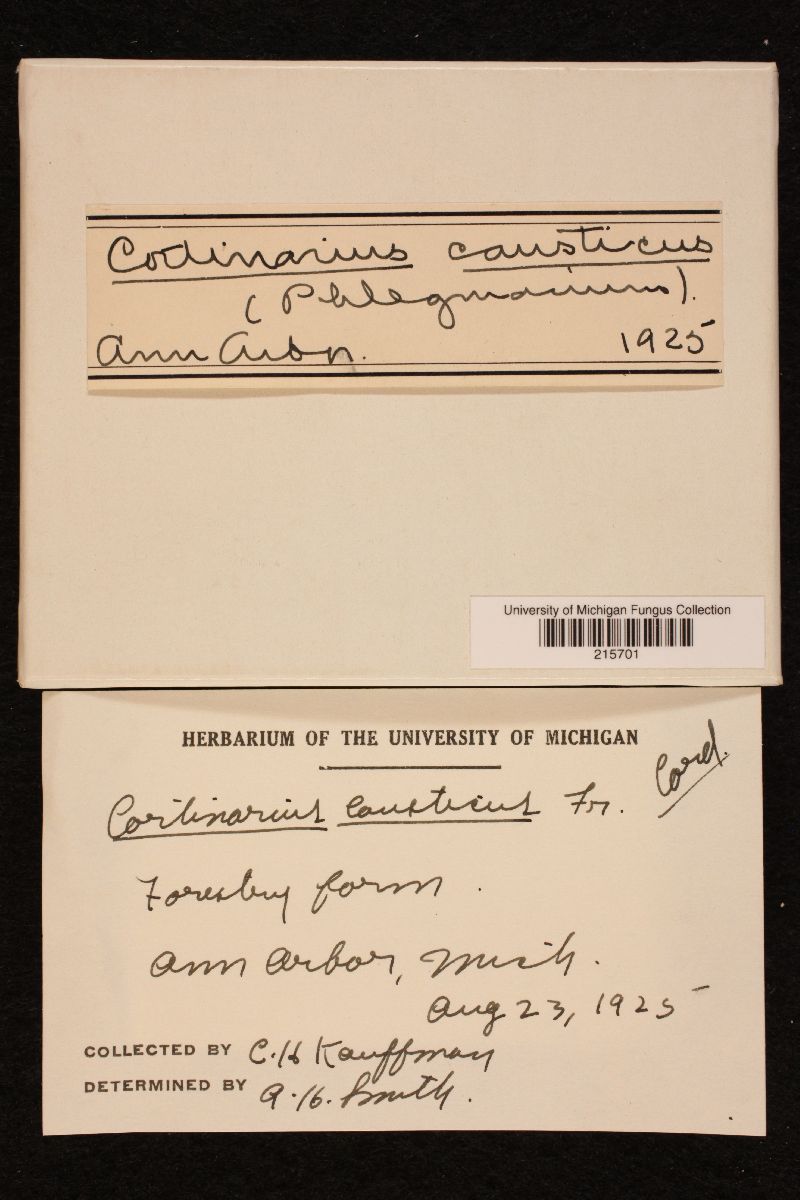 Cortinarius causticus
(Phlegmacium).
Ann Arbor.
1925
University of Michigan Fungus Collection
215701
HERBARIUM OF THE UNIVERSITY OF MICHIGAN
Card.
Cortinarius causticus Fr.
Forestry farm.
Ann Arbor, Mich.
Aug 23, 1925
COLLECTED BY C.H Kauffman
DETERMINED BY A.H. Smith.